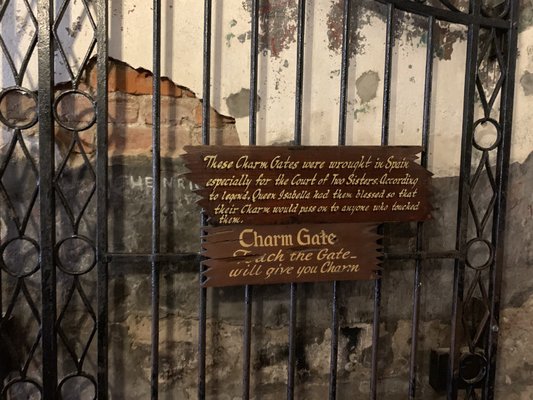 These Charm Gates were wrought in Spain
especially for the Court of Two Sisters. According
to legend, Queen Isabella had them blessed so that
their Charm would pass on to anyone who touched
them.
Charm Gate
Touch the Gate_
will give you Charm
HENRI